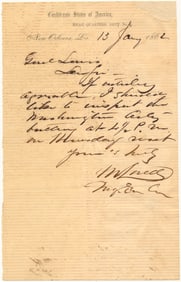 Confederate States of America,
HEAD-QUARTERS, DEPT. No. 1
New Orleans, La. 13 Jany 1862
Genl Lewis
Dr Sir—
If entirely
agreeable, I should
like to inspect the
Washington Arty
battery at 4 P. M
on Thursday next
Yours Truly
M Lovell
Maj. Gen Com